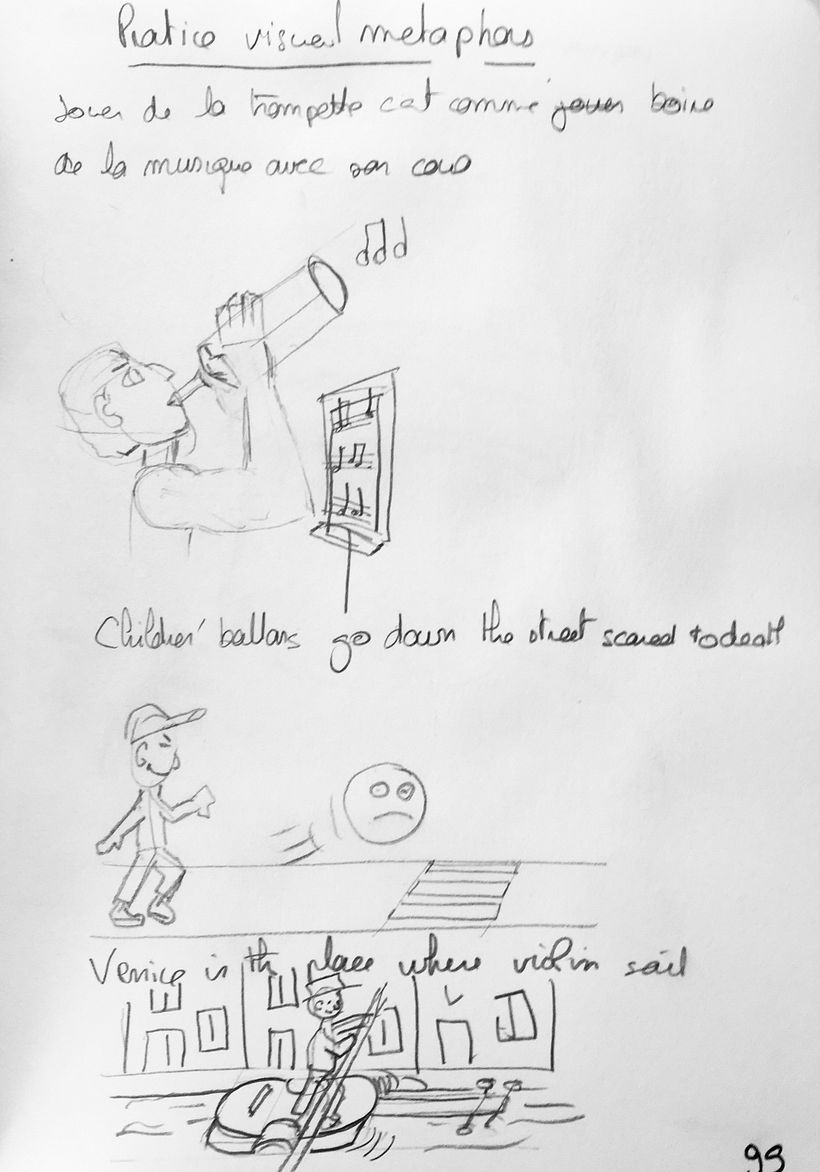 Pratice visual metaphors
Jouer de la trompette c'est comme jouer boire
de la musique avec son cous
Children' ballons go down the street scared to death
Venice is the place where violin sail
99